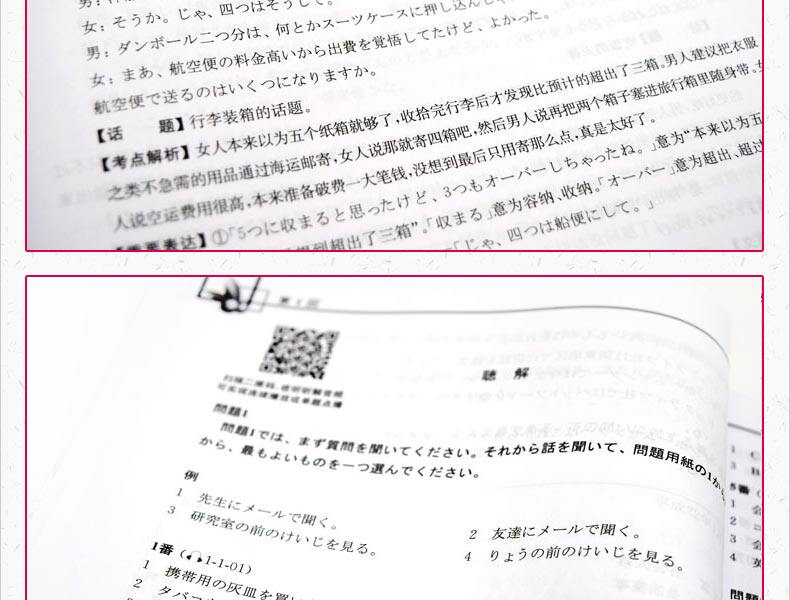 女：そうか。じゃ、四つはそうして。
男：ダンボール二つ分は、何とかスーツケースに押し込んじゃ
女：まあ、航空便の料金高いから出費を覚悟してたけど、よかった。
航空便で送るのはいくつになりますか。
【话　　题】行李装箱的话题。
【考点解析】女人本来以为五个纸箱就够了，收拾完行李后才发现比预计的超出了三箱。男人建议把衣服
之类不急需的用品通过海运邮寄，女人说那就寄四箱吧，然后男人说再把两个箱子塞进旅行箱里随身带。女
人说空运费用很高，本来准备破费一大笔钱，没想到最后只用寄那么点，真是太好了。
【重要表达】①「5つに収まると思ったけど、3つもオーバーしちゃったね。」意为“本来以为五
想到超出了三箱”。「収まる」意为容纳、收纳。「オーバー」意为超出、超过
「じゃ、四つは船便にして。」
第1回
扫描二维码，收听听解音频
聴　解
問題1
問題1では、まず質問を聞いてください。それから話を聞いて、問題用紙の1から
から、最もよいものを一つ選んでください。
例
1　先生にメールで聞く。
2　友達にメールで聞く。
3　研究室の前のけいじを見る。
4　りょうの前のけいじを見る。
1番（1-1-01）
1　携帯用の灰皿を買い
2　タバコ
1　C
3　B
5番（
1　会
2
3　会
4　英
問題